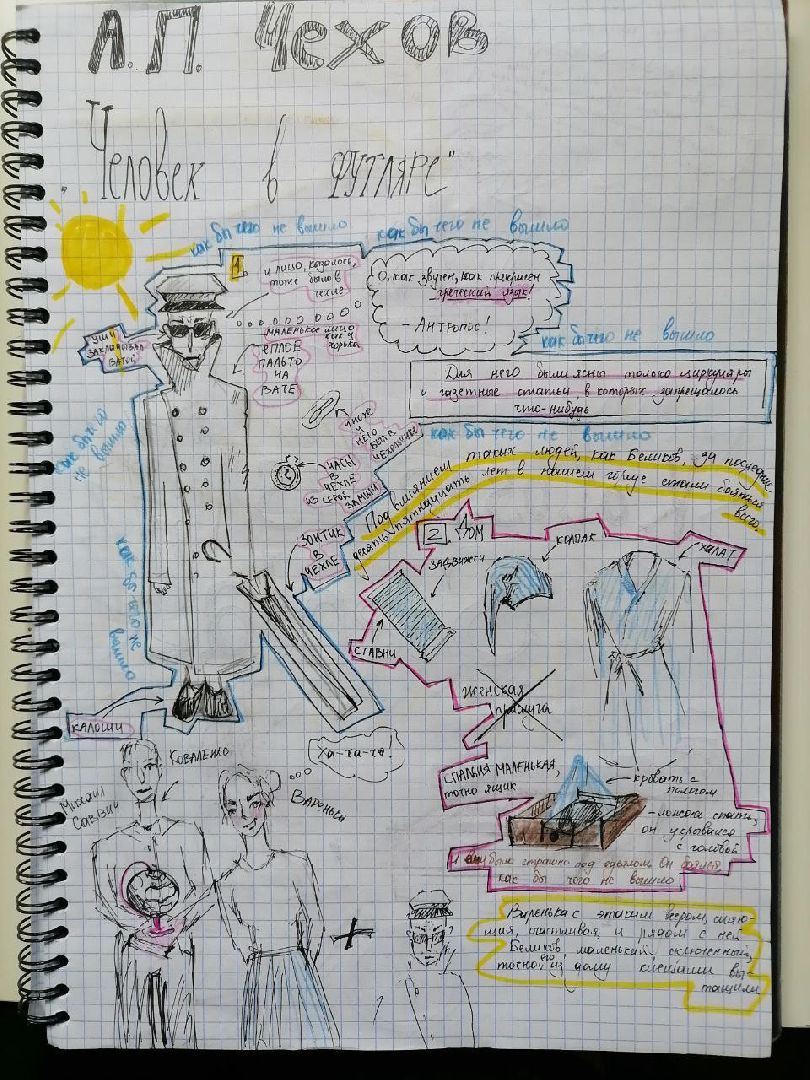 А. П. Чехов
„Человек в футляре"
как бы чего не вышло
как бы чего не вышло
1
и лицо, казалось,
тоже было в
чехле
О, как звучен, как прекрасен
греческий язык!
- Антропос!
маленькое лицо
как у
хорька
уши
закладывал
ватой
тёплое
пальто
на
вате
как бы чего не вышло
Для него были ясны только циркуляры
и газетные статьи в которых запрещалось
что-нибудь
как бы чего не вышло
как бы чего
не вышло
часы
в
чехле
из серой
замши
Под влиянием таких людей, как Беликов, за последние
десять - пятнадцать лет в нашем городе стали бояться
всего.
зонтик
в
чехле
как бы чего не
вышло
2
Дом
задвижки
колпак
халат
ставни
женская
прислуга
калоши
Ха-ха-ха!
Коваленко
Михаил
Саввич
Варенька
спальня маленькая,
точно ящик
кровать с
пологом
- ложась спать,
он укрывался
с головой
и ему было страшно под одеялом. Он боялся,
как бы чего не вышло
+
Варенька с этаким веером, сияю-
щая, счастливая и рядом с ней
Беликов маленький, скрюченный,
точно его из дому клещами вы-
тащили